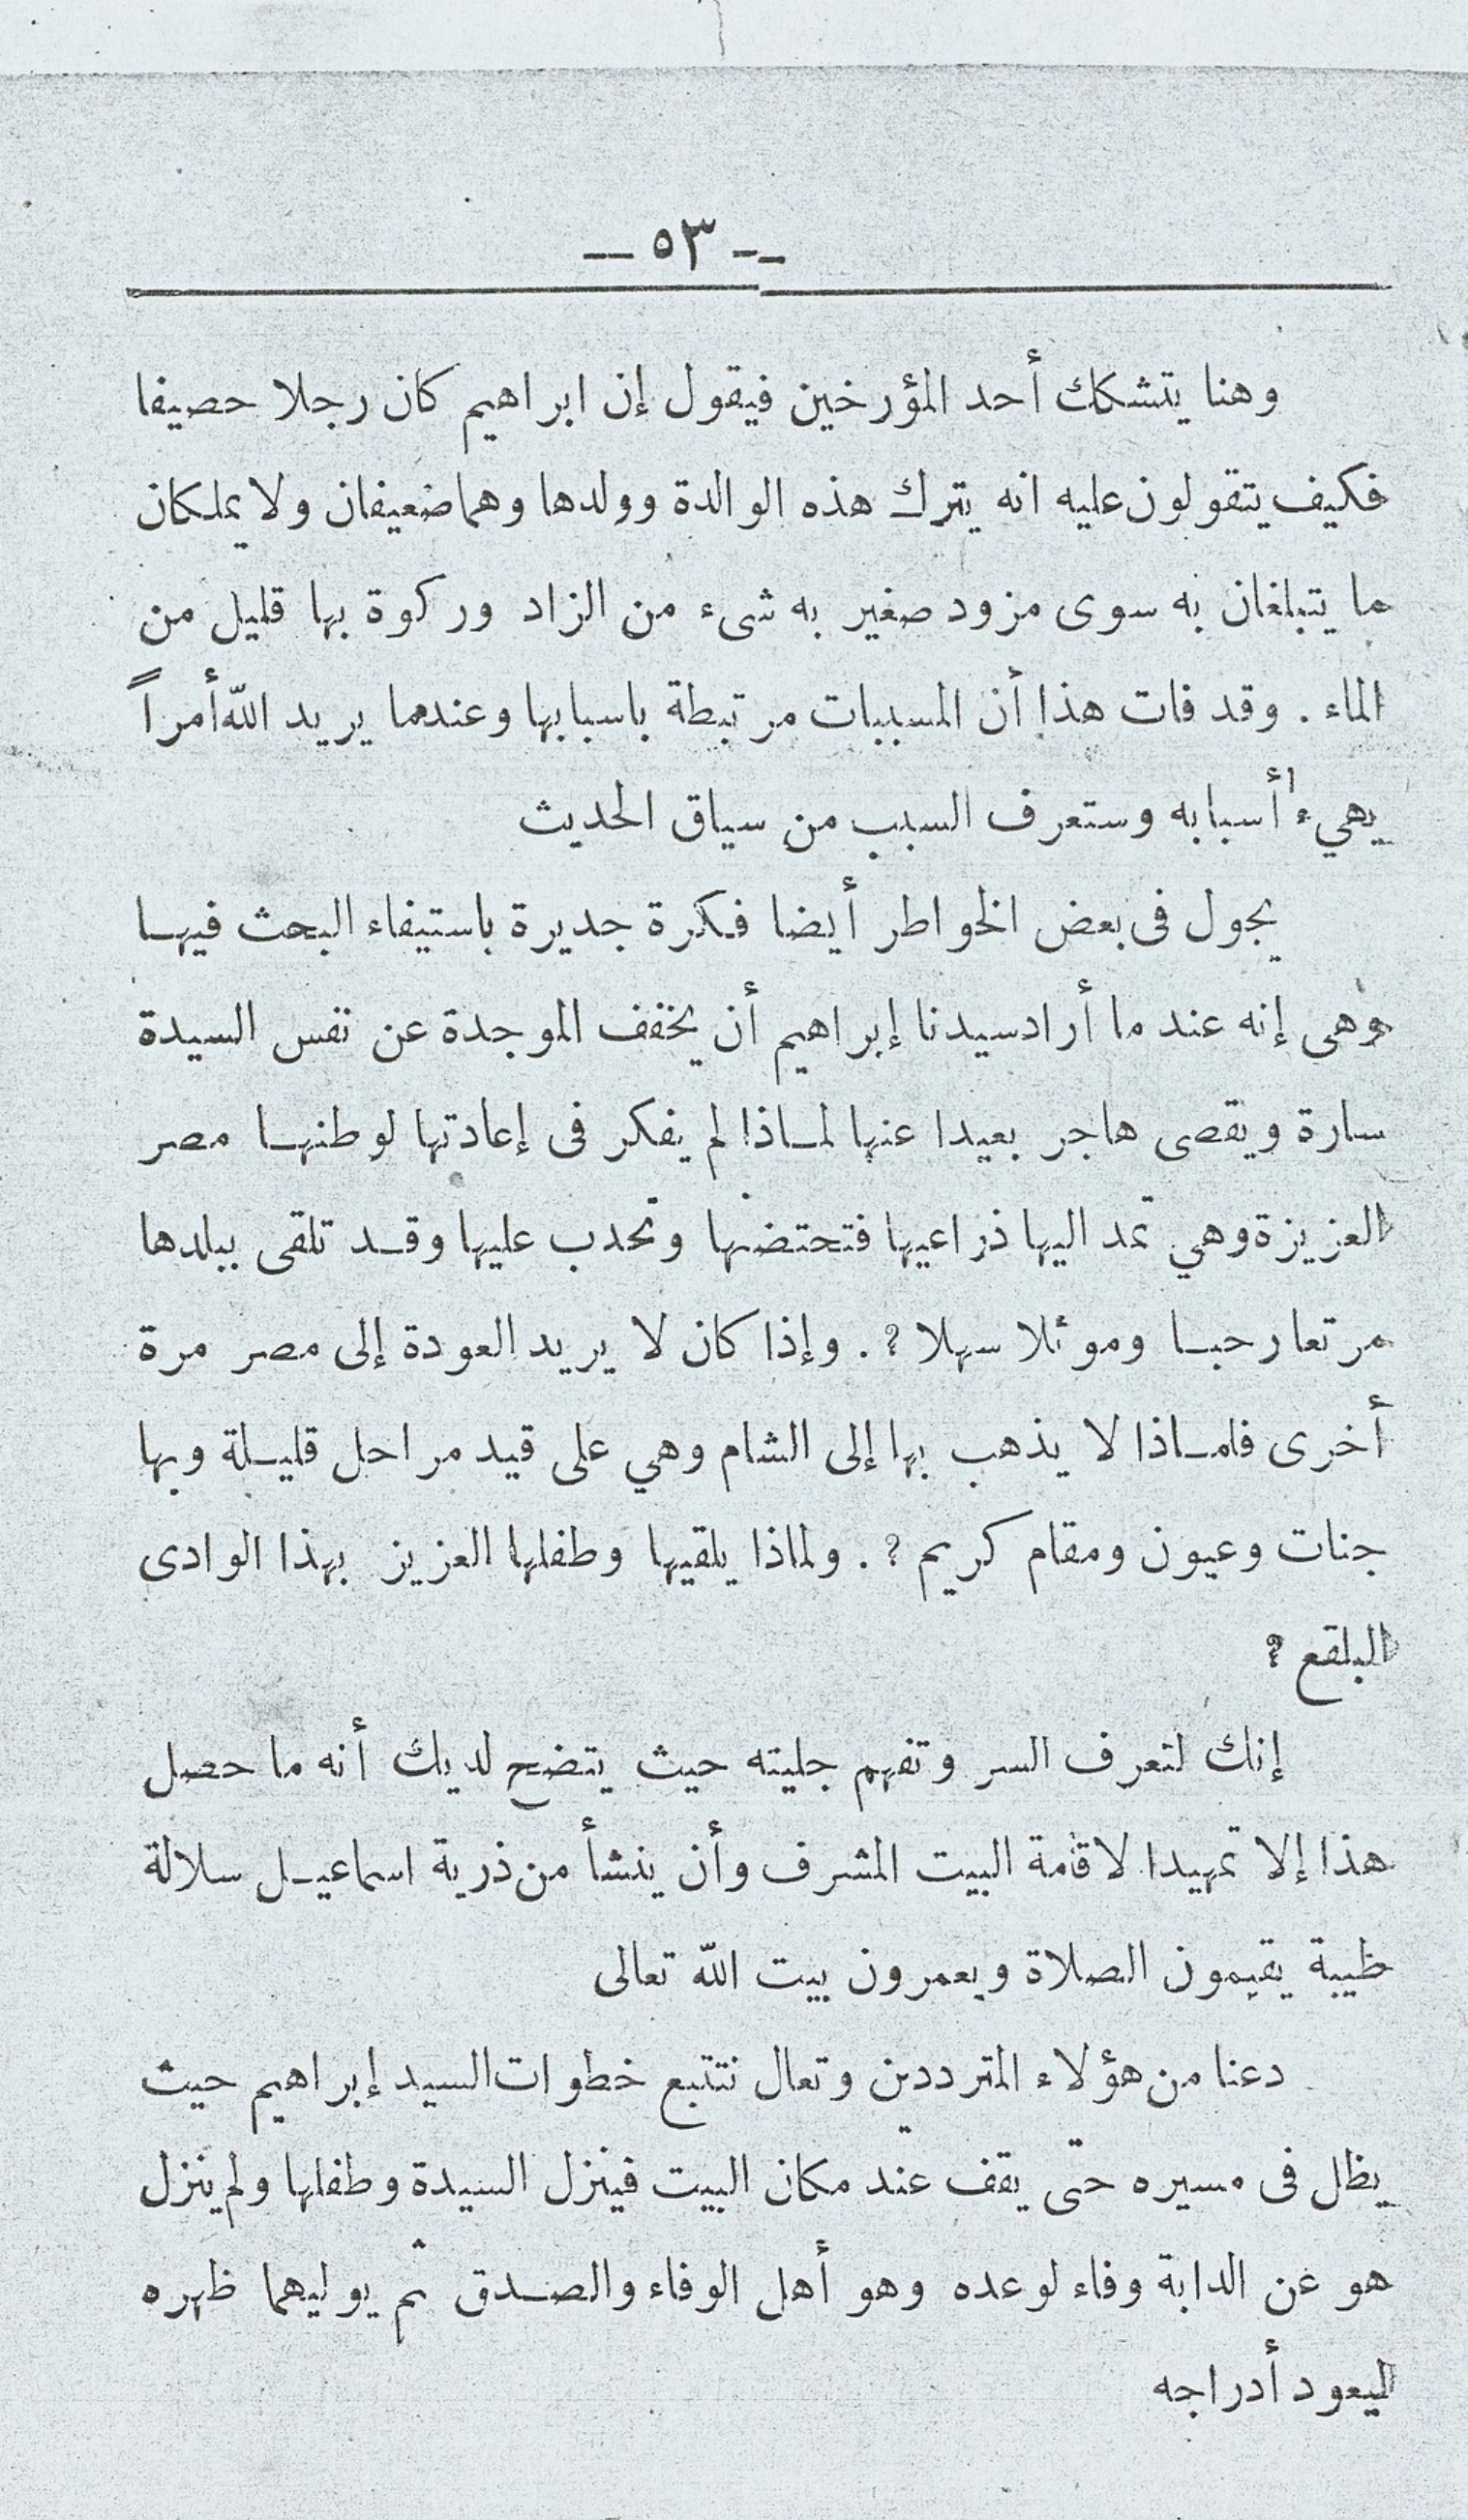 — ٥٣ —
وهنا يتشكك أحد المؤرخين فيقول إن ابراهيم كان رجلا حصيفا
فكيف يتقولون عليه انه يترك هذه الوالدة وولدها وهما ضعيفان ولا يملكان
ما يتبلغان به سوى مزود صغير به شىء من الزاد وركوة بها قليل من
الماء . وقد فات هذا أن المسببات مرتبطة باسبابها وعندما يريد الله أمراً
يهيء أسبابه وستعرف السبب من سياق الحديث
يجول فى بعض الخواطر أيضا فكرة جديرة باستيفاء البحث فيها
وهى إنه عند ما أراد سيدنا إبراهيم أن يخفف الموجدة عن نفس السيدة
سارة ويقصى هاجر بعيدا عنها لماذا لم يفكر فى إعادتها لوطنها مصر
العزيزة وهي تمد اليها ذراعيها فتحتضنها وتحدب عليها وقد تلقى ببلدها
مرتعا رحبا وموئلا سهلا ؟ . وإذا كان لا يريد العودة إلى مصر مرة
أخرى فلماذا لا يذهب بها إلى الشام وهي على قيد مراحل قليلة وبها
جنات وعيون ومقام كريم ؟ . ولماذا يلقيها وطفلها العزيز بهذا الوادى
البلقع ؟
إنك لتعرف السر وتفهم جليته حيث يتضح لديك أنه ما حصل
هذا إلا تمهيدا لاقامة البيت المشرف وأن ينشأ من ذرية اسماعيل سلالة
طيبة يقيمون الصلاة ويعمرون بيت الله تعالى
دعنا من هؤلاء المترددين وتعال نتتبع خطوات السيد إبراهيم حيث
يظل فى مسيره حتى يقف عند مكان البيت فينزل السيدة وطفلها ولم ينزل
هو عن الدابة وفاء لوعده وهو أهل الوفاء والصدق ثم يوليهما ظهره
ليعود أدراجه